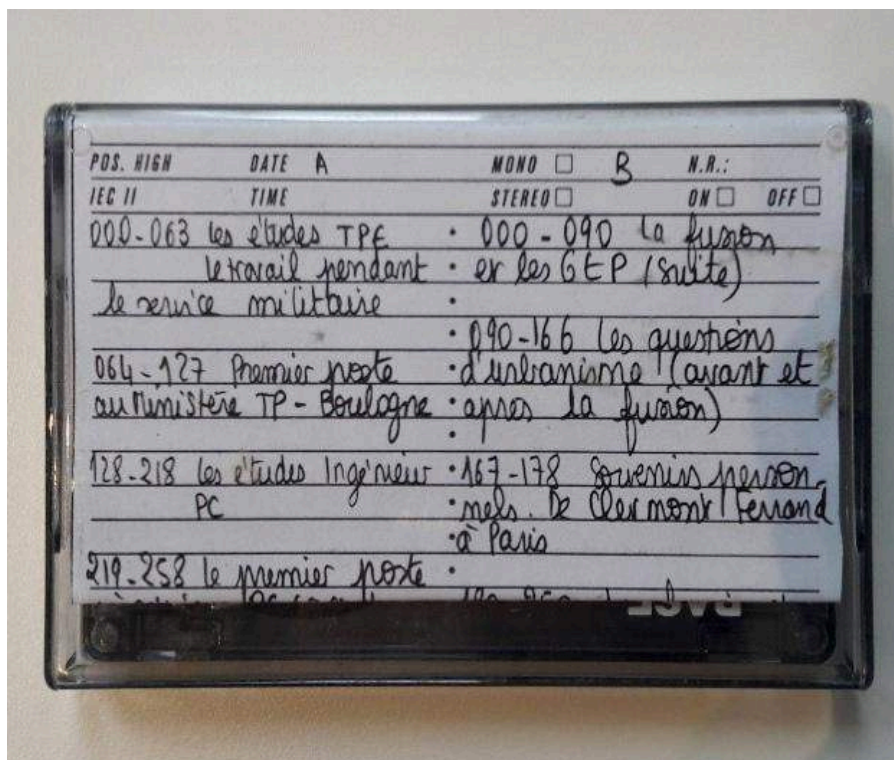 POS. HIGH DATE A MONO B N.R.:
IEC II TIME STEREO ON OFF
000-063 les études TPE
le travail pendant
le service militaire
064-127 Premier poste
au Ministère TP - Boulogne
128-218 les études Ingénieur
PC
219-258 le premier poste
000-090 la fusion
et les GEP (suite)
090-166 les questions
d'urbanisme (avant et
apres la fusion)
167-178 souvenirs person-
nels. De Clermont Ferrand
à Paris